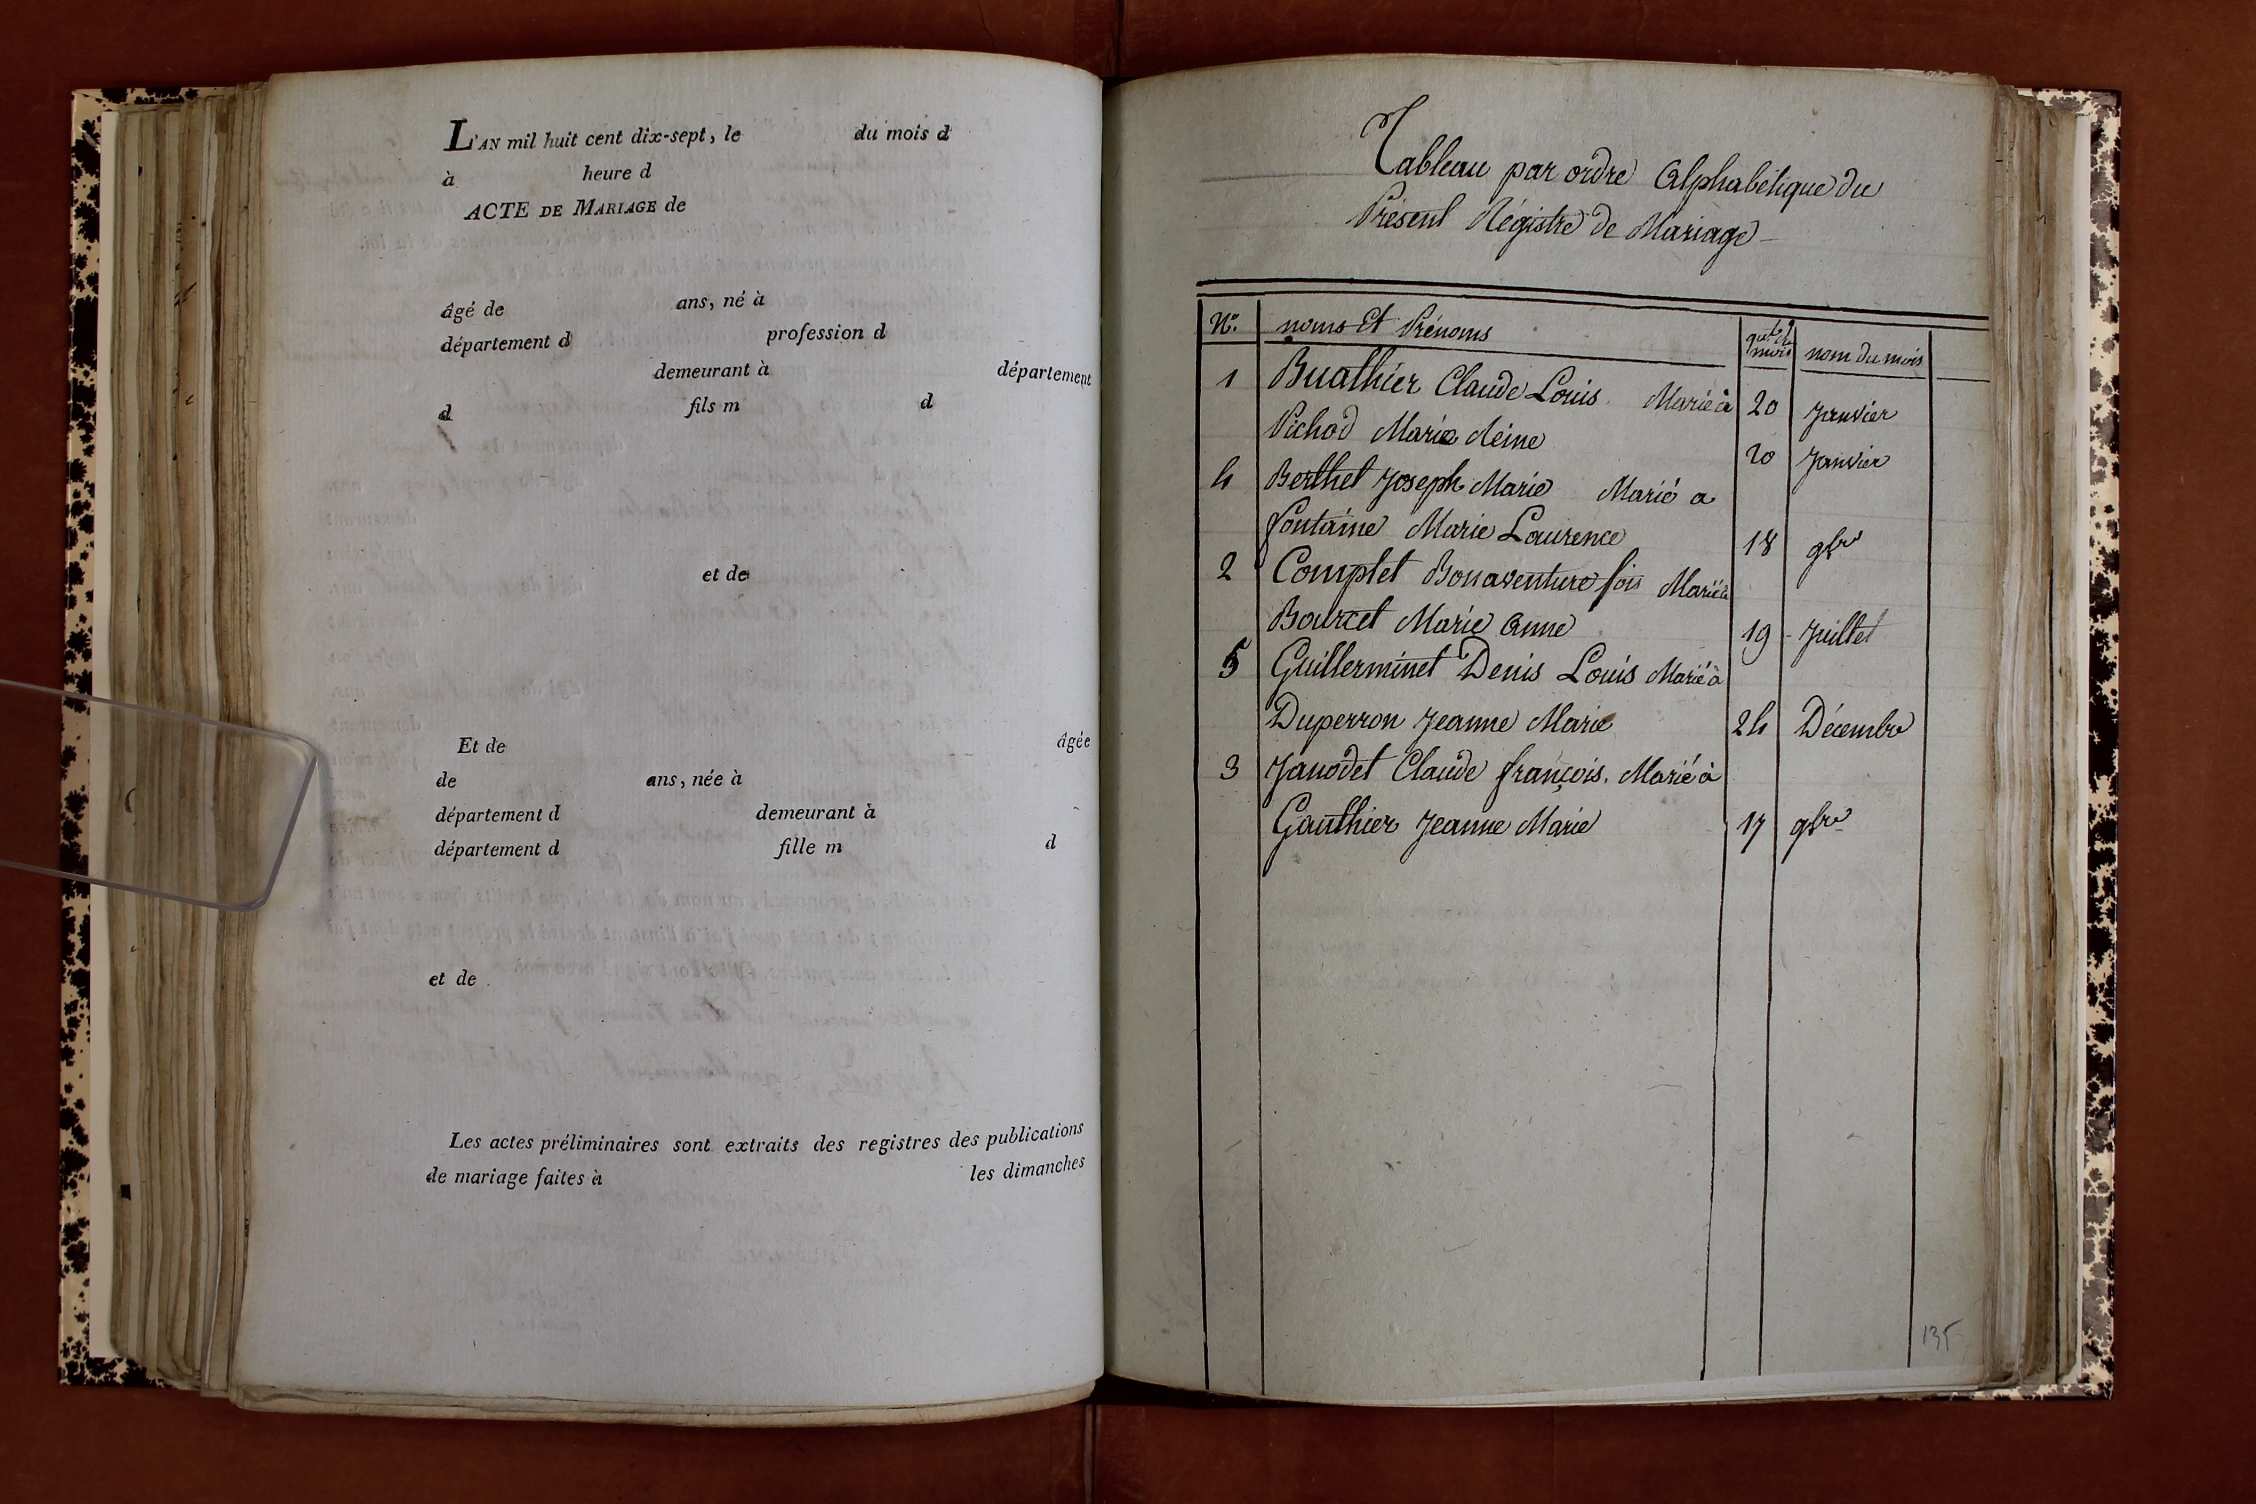 L'AN mil huit cent dix-sept, le du mois d
à heure d
ACTE DE MARIAGE de
âgé de ans, né à
département d profession d
demeurant à département
d fils m d
et de
Et de âgée
de ans, née à
département d demeurant à
département d fille m d
et de
Les actes préliminaires sont extraits des registres des publications
de mariage faites à les dimanches
Tableau par ordre Alphabétique du
Présent Régistre de Mariage
N.º noms Et Prénoms mois nom du mois
1 Buathier Claude Louis Marié à 20 Janvier
Pichod Marie Reine 20 Janvier
4 Berthet Joseph Marie Marié a
fontaine Marie Laurence 18 9bre
2 Complet Bonaventure fois Marié à
Bourcet Marie Anne 19 Juillet
5 Guillerminet Denis Louis Marié à
Duperron Jeanne Marie 24 Décembre
3 Janodet Claude françois. Marié à
Gauthier Jeanne Marie 17 9bre
135